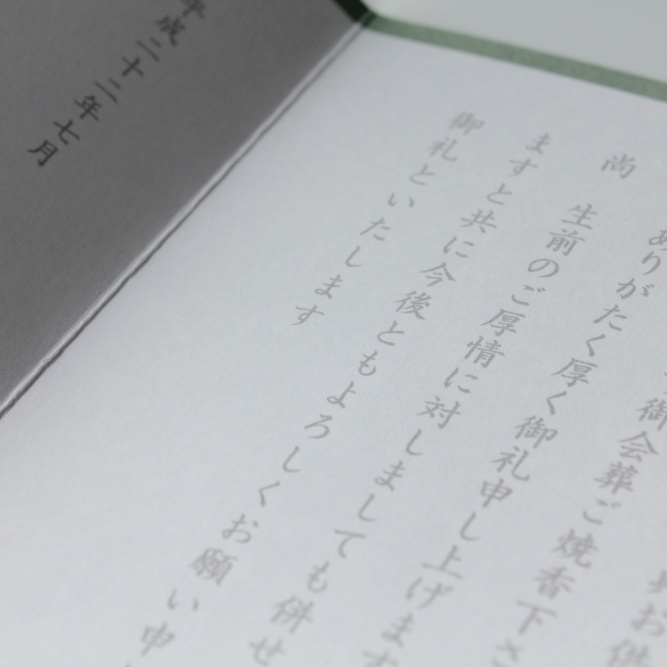 お供
御会葬ご焼香下さ
ありがたく厚く御礼申し上げます
尚　生前のご厚情に対しましても併せ
ますと共に今後ともよろしくお願い申
御礼といたします
平成二十二年七月